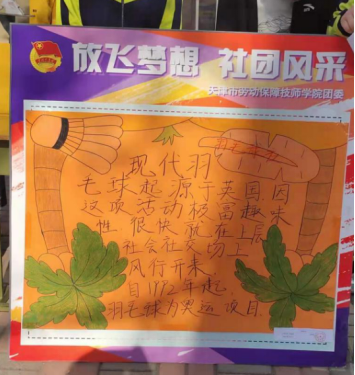 放飞梦想 社团风采
天津市劳动保障技师学院团委
现代羽
毛球起源于英国.因
这项活动极富趣味
性.很快就在上层
社会社交场上
风行开来.
自1992年起.
羽毛球为奥运项目.